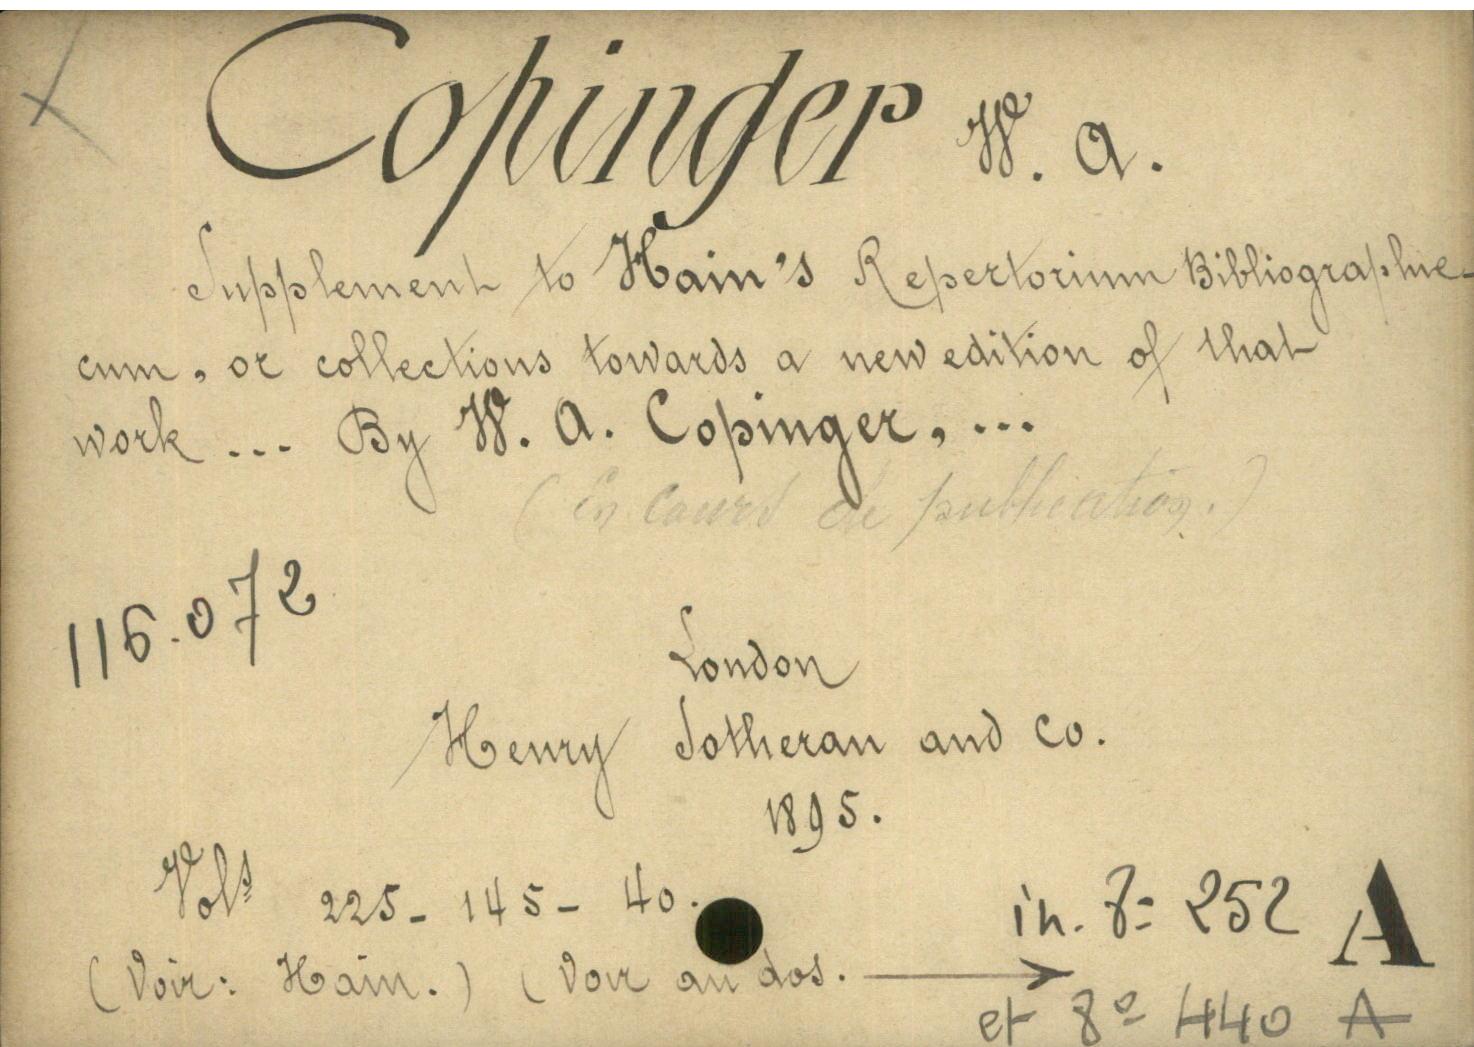 Copinger W. A.
Supplement to Hain's Repertorium Bibliographi-
cum, or collections towards a new edition of that
work ... By W. A. Copinger, ...
(En cours de publication.)
116.072
London
Henry Sotheran and Co.
1895.
Vols 225 - 145 - 40.
in. 8º 252 A
(Voir: Hain.) (Voir au dos.
et 8º 440 A